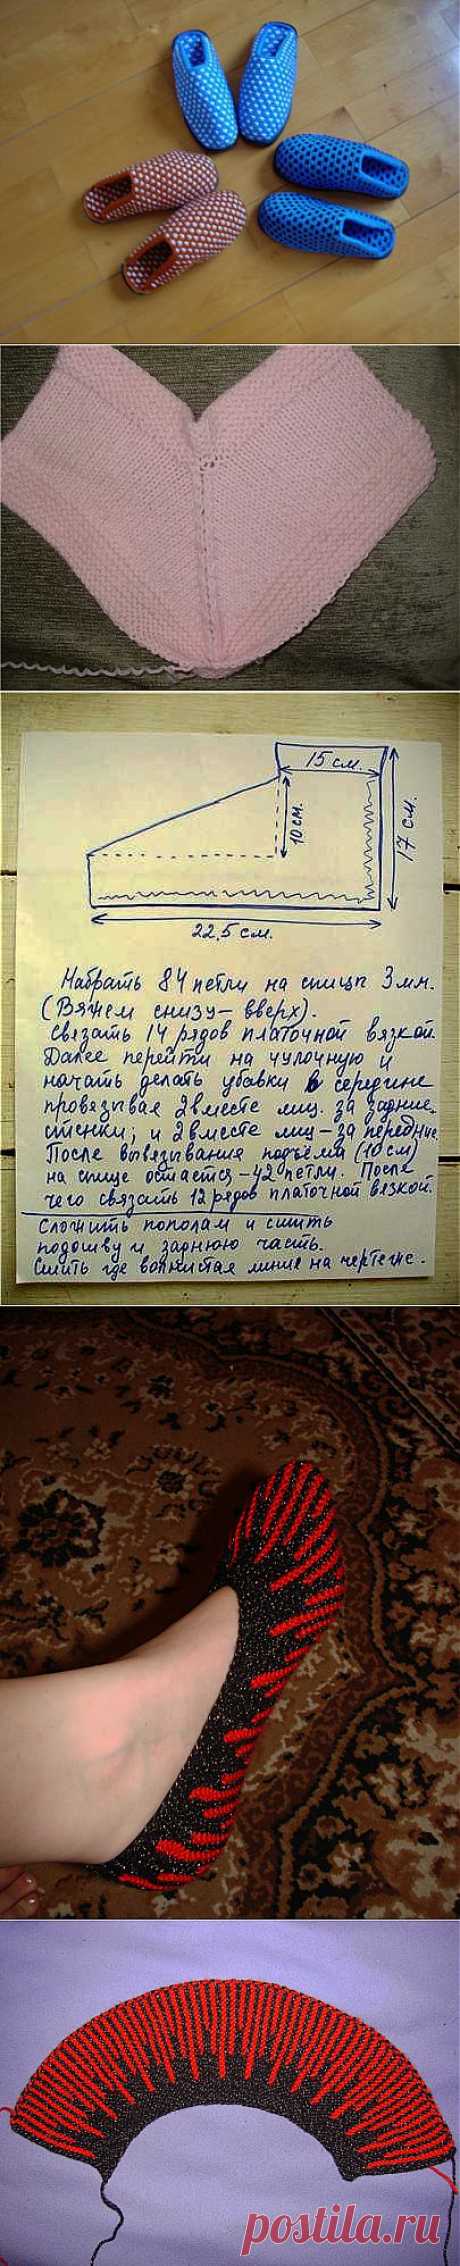 15 см.
10 см.
17 см.
22,5 см.
Набрать 84 петли на спицы 3 мм.
(Вяжем снизу-вверх).
Связать 14 рядов платочной вязкой.
Далее перейти на чулочную и
начать делать убавки в середине
провязывая 2 вместе лиц. за задние
стенки; и 2 вместе лиц-за передние.
После вывязывания подъёма (10 см)
на спице остается-42 петли. После
чего связать 12 рядов платочной вязкой.
Сложить пополам и сшить
подошву и заднюю часть.
Сшить где волнистая линие на чертеже.
postila.ru